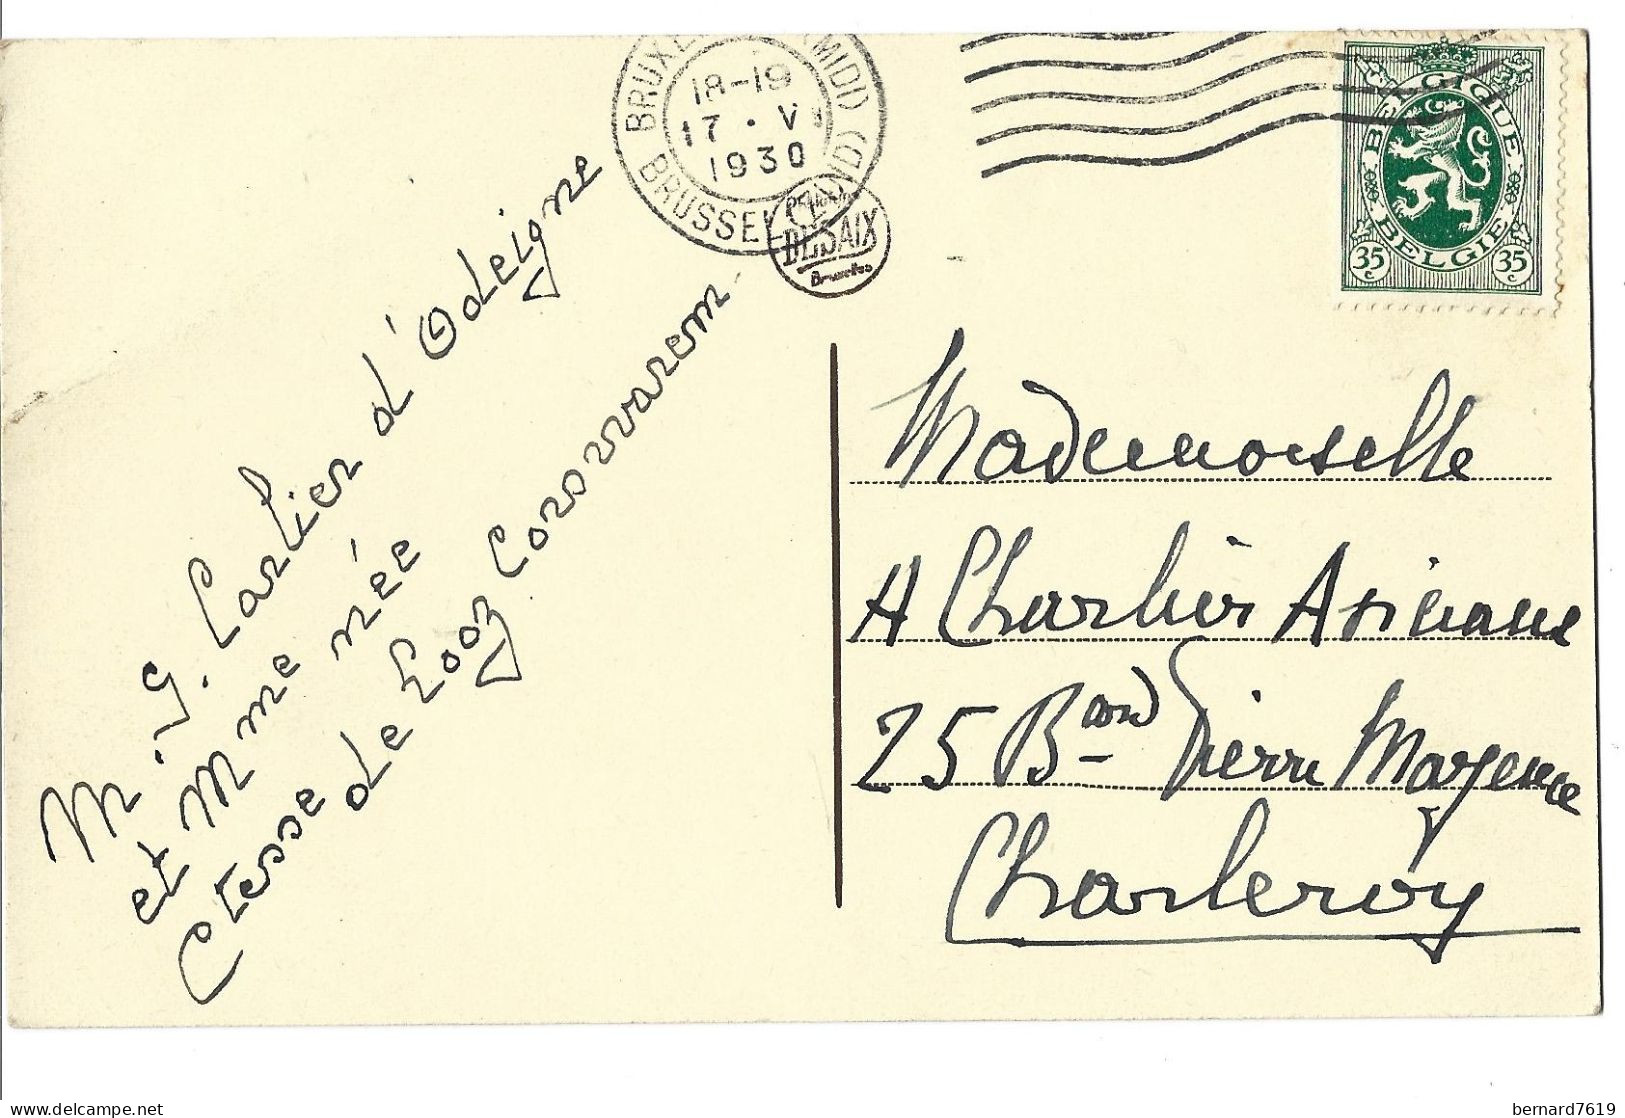 BRUXELLES (MIDI)
18-19
17 · VI
1930
BRUSSEL (ZUID)
DESAIX
Bruxelles
BELGIQUE
BELGIE
35 c
35 c
M. G. Carlier d'Odeigne
et Mme née
Ctesse de Looz Corswarem
Mademoiselle
A Charlier
25 Bard Pierre Mayence
Charleroy
bernard7619